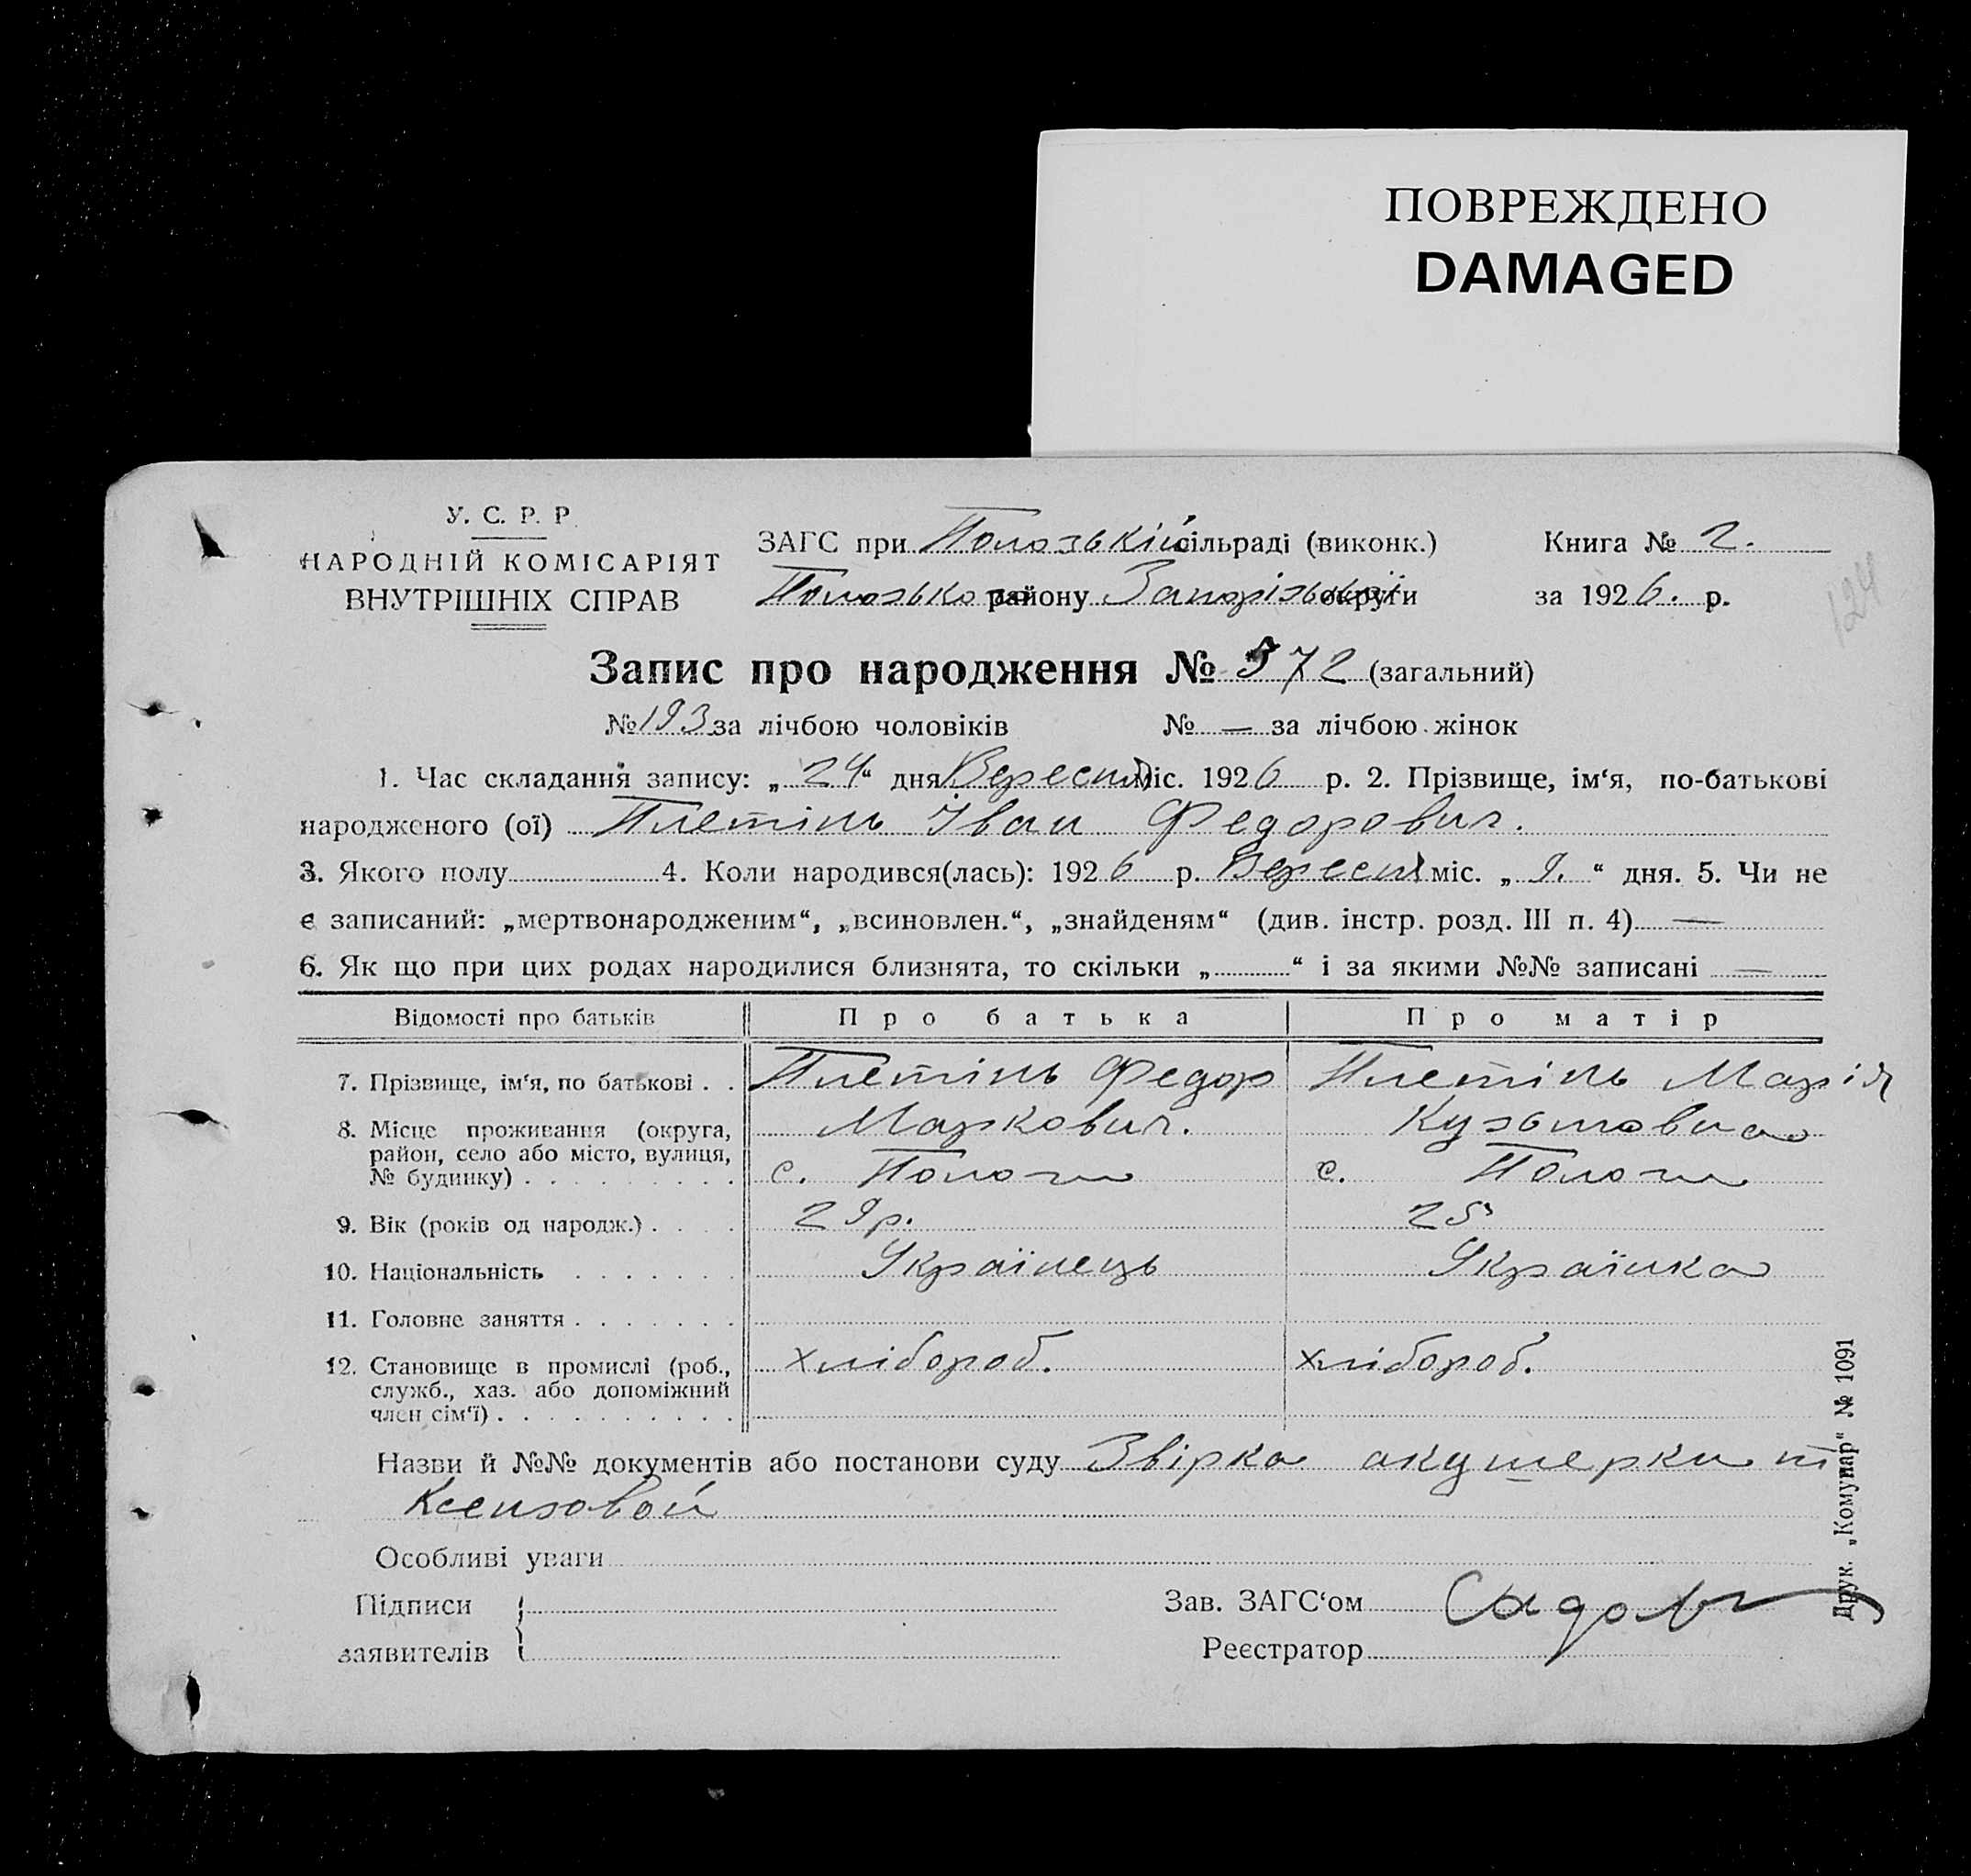 ПОВРЕЖДЕНО
DAMAGED
У. С. Р. Р.
НАРОДНІЙ КОМІСАРІЯТ
ВНУТРІШНІХ СПРАВ
ЗАГС при Пологській сільраді (виконк.)
Книга № 2.
района Запорізької округи
за 1926. р.
124
Запис про народження № 572 (загальний)
№ 193 за лічбою чоловіків № — за лічбою жінок
1. Час складання запису: „ 24 “ дня Вересня міс. 1926 р. 2. Прізвище, ім‘я, по-батькові
народженого (ої) Плетінь Іван Федорович.
3. Якого полу 4. Коли народився(лась): 1926 р. Вересня міс. „ 9. “ дня. 5. Чи не
є записаний: „мертвонародженим“, „всиновлен.“, „знайденям“ (див. інстр. розд. III п. 4) —
6. Як що при цих родах народилися близнята, то скільки „ “ і за якими №№ записані —
Відомості про батьків Про батька Про матір
7. Прізвище, ім‘я, по батькові . . Плетінь Федор Плетінь Марія
Маркович. Кузьмовна
8. Місце проживання (округа,
район, село або місто, вулиця,
№ будинку) с. Пологи с. Пологи
9. Вік (років од народж.) 29 р. 25
10. Національність Українець Українка
11. Головне заняття
12. Становище в промислі (роб.,
служб., хаз. або допоміжний
член сім‘ї) хлібороб. хлібороб.
Назви й №№ документів або постанови суду Звірка акушерки т
Особливі уваги
Підписи
заявителів
Зав. ЗАГС‘ом
Реєстратор
Друк. „Комунар“ № 1091